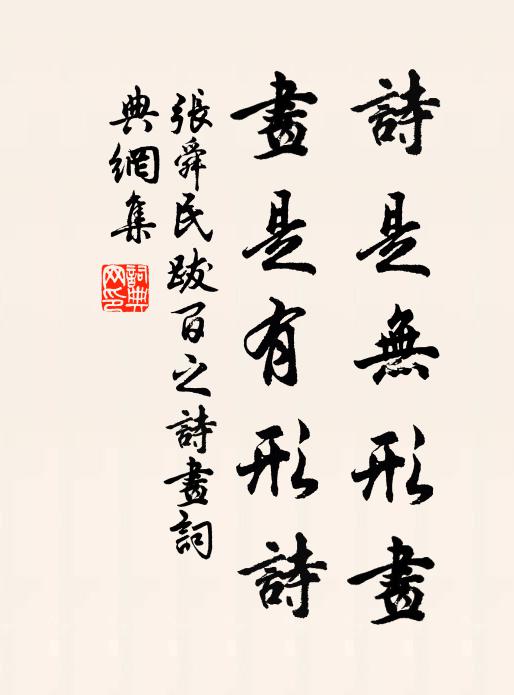 詩是無形畫
畫是有形詩
張舜民跋百之詩畫詞
典網集
詞典網印